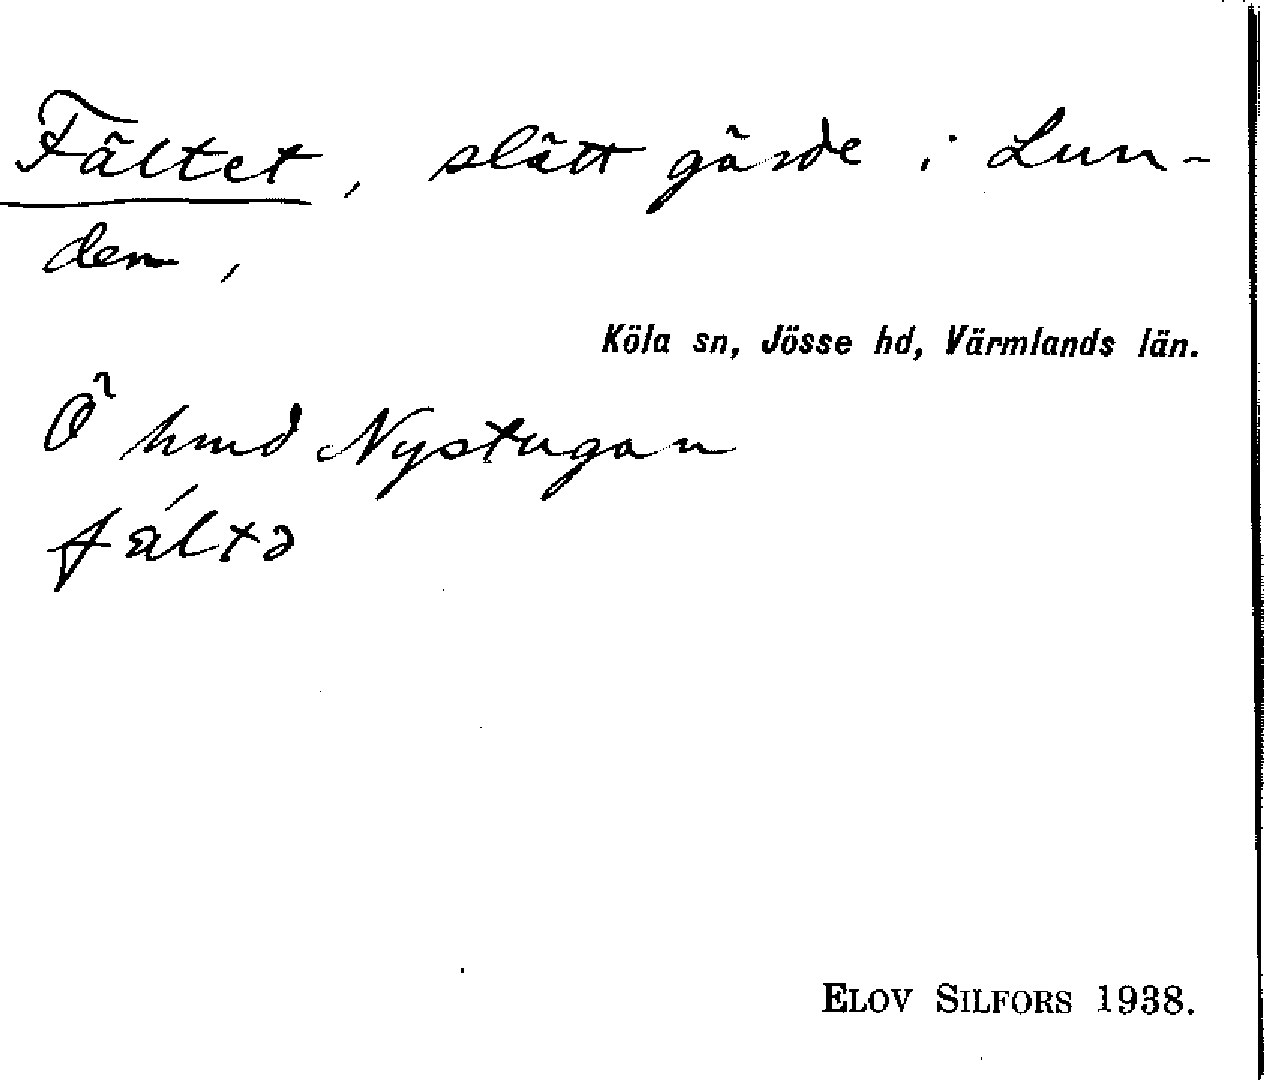 Fältet, slätt gärde i Lun-
den,
Köla sn, Jösse hd, Värmlands län.
Ö hmd Nystugan
fæ´ltə
ELOV SILFORS 1938.